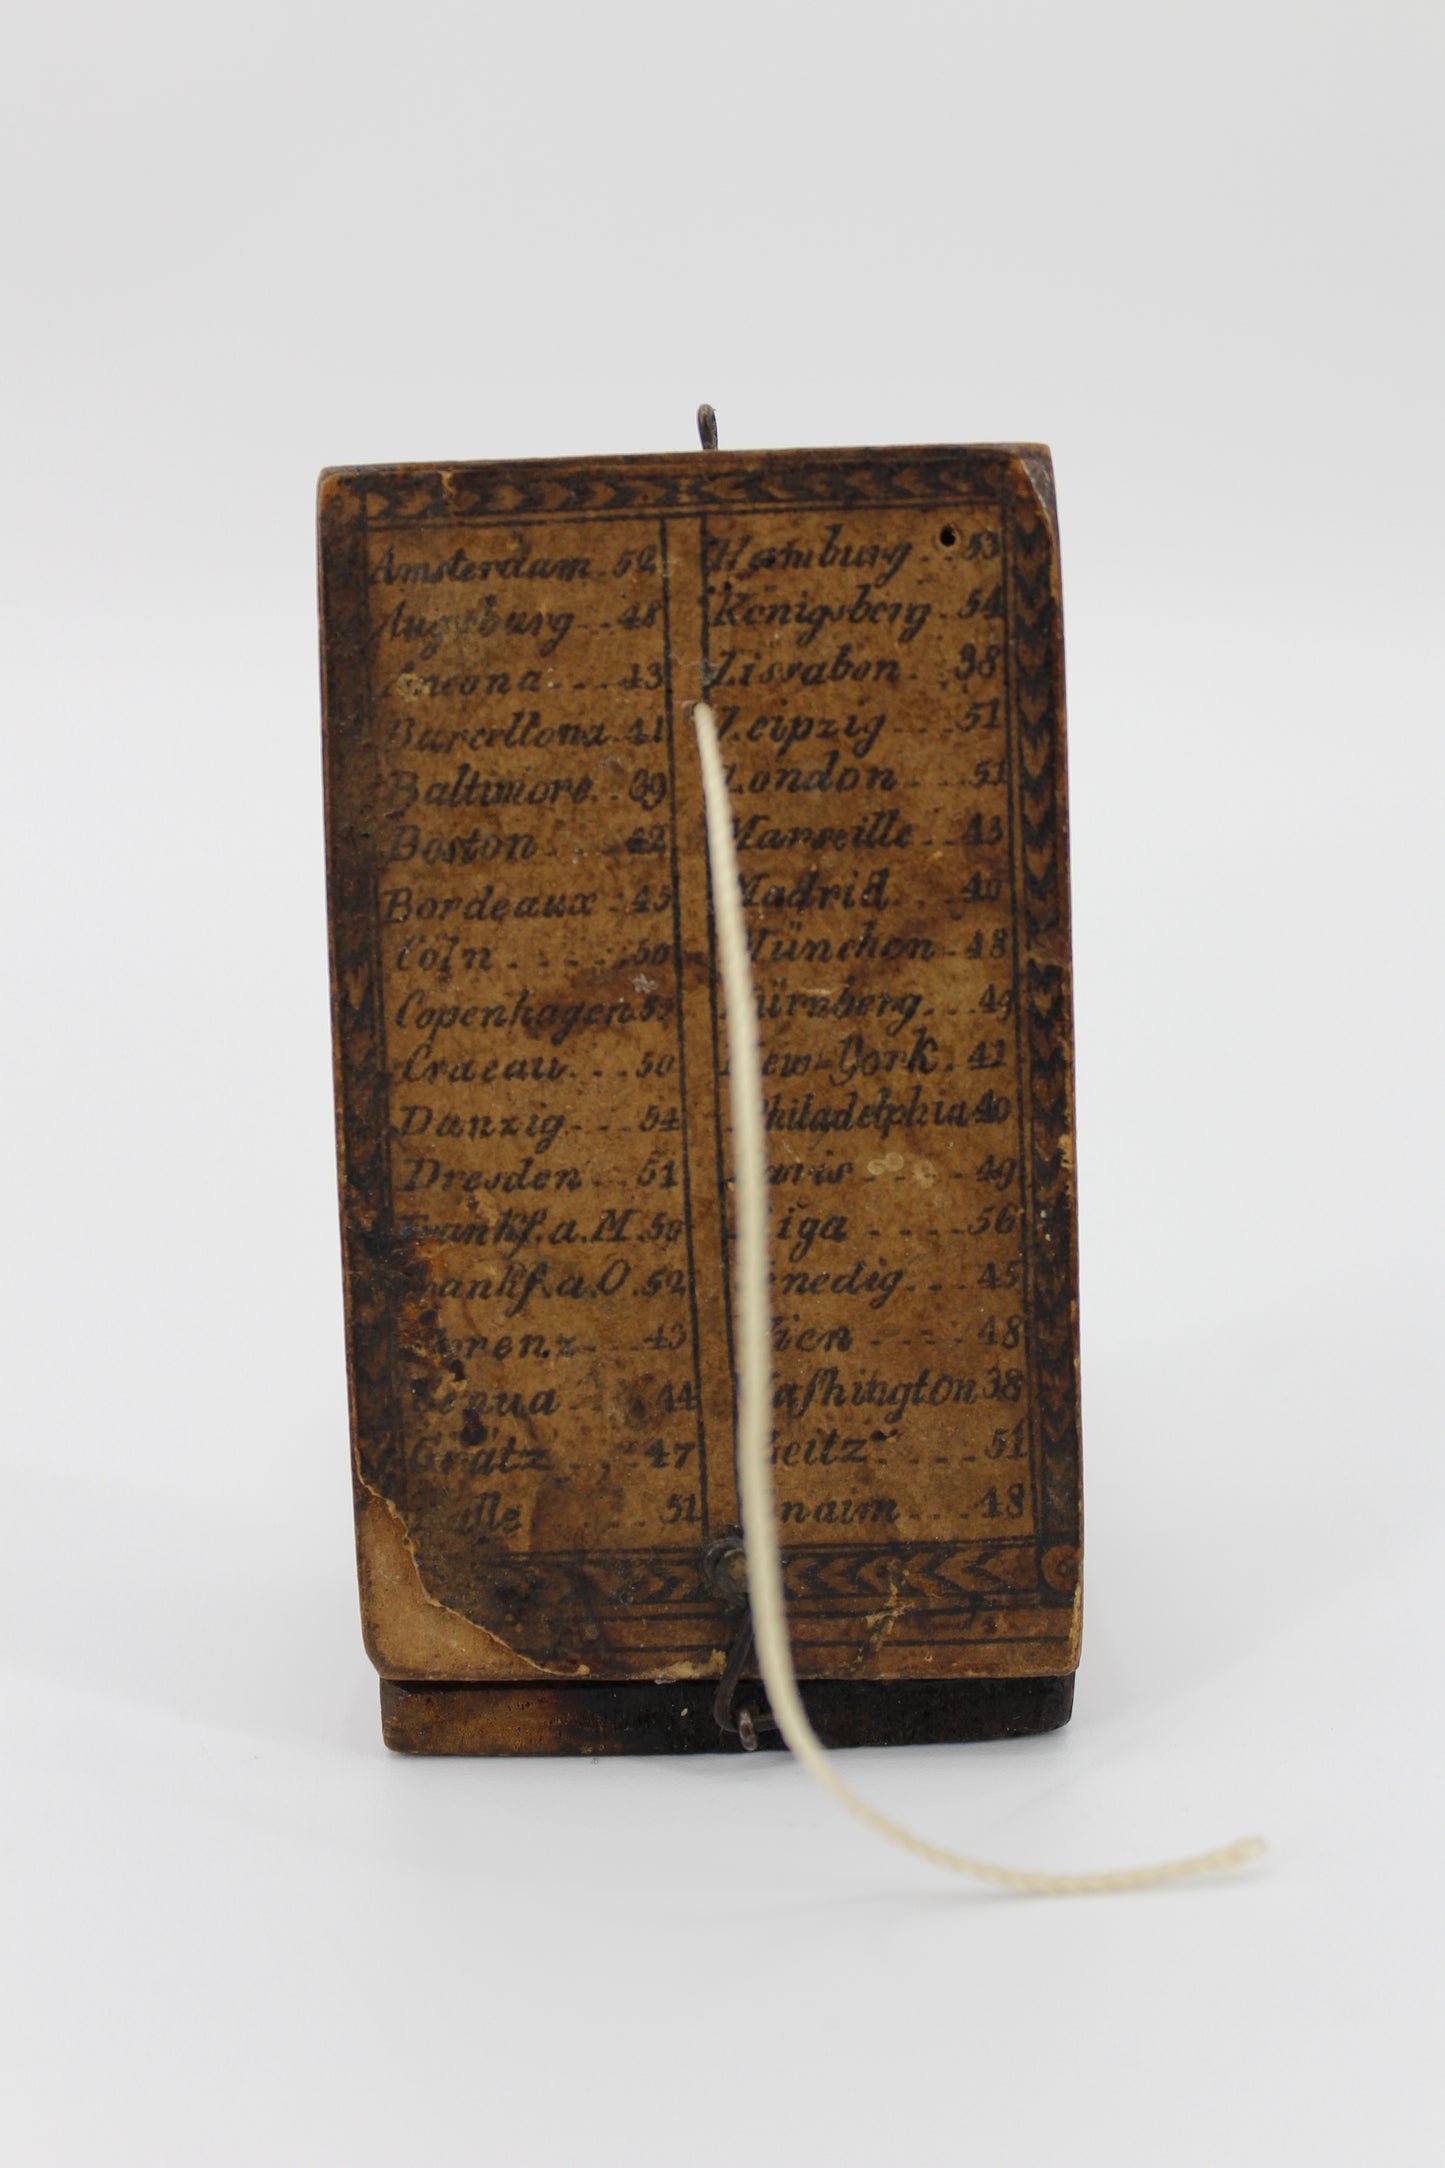 Amsterdam 52
Augsburg 48
Ancona 43
Barcellona 41
Baltimore 39
Boston 42
Bordeaux 45
Cöln 50
Copenhagen
Cracau 50
Danzig 54
Dresden 51
Frankf. a. M. 50
Frankf. a. O. 52
Florenz 43
Genua 44
Grätz 47
Halle 51
Hamburg 53
Königsberg 54
Lissabon 38
Leipzig 51
London 51
Marseille 43
Madrid 40
München 48
Nürnberg 49
New-York 41
Philadelphia 40
Paris 49
Riga 56
Venedig 45
Wien 48
Waſhington 38
Zeitz 51
naim 48